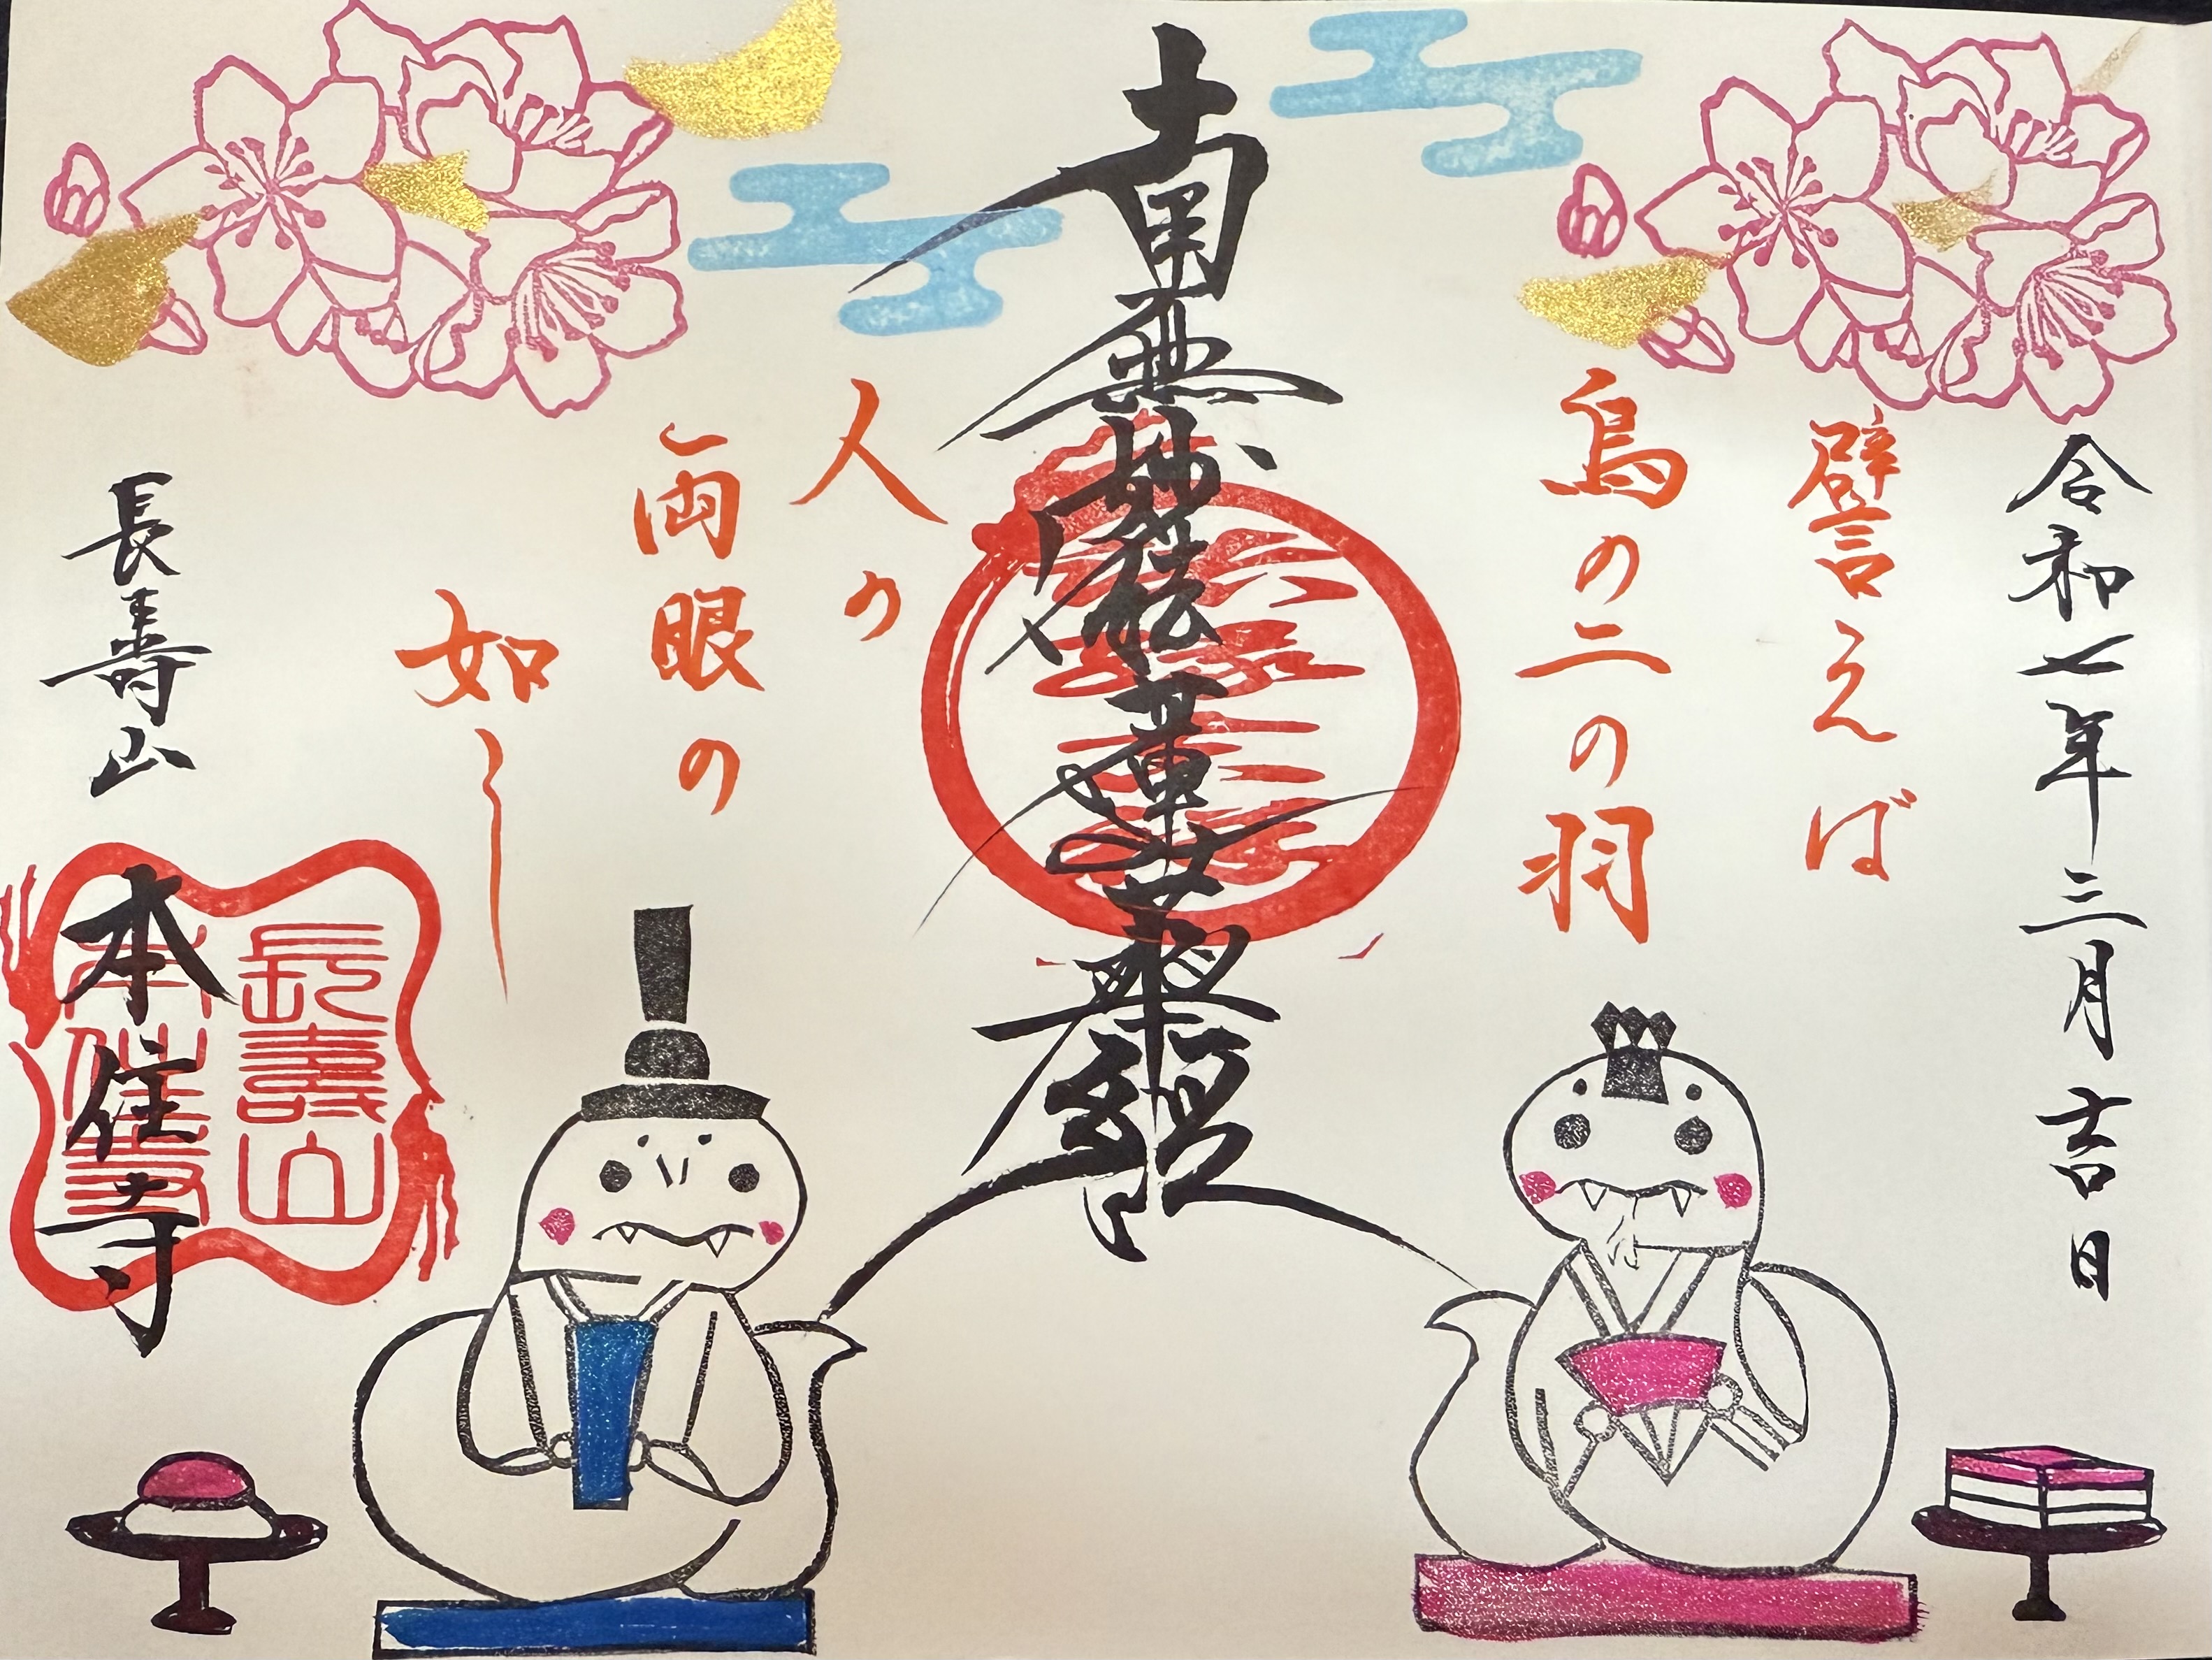 令和七年三月吉日
譬えば
鳥の二の羽
南無妙法蓮華経
人の
両眼の
如し
長寿山
本住寺
長壽山
本住寺